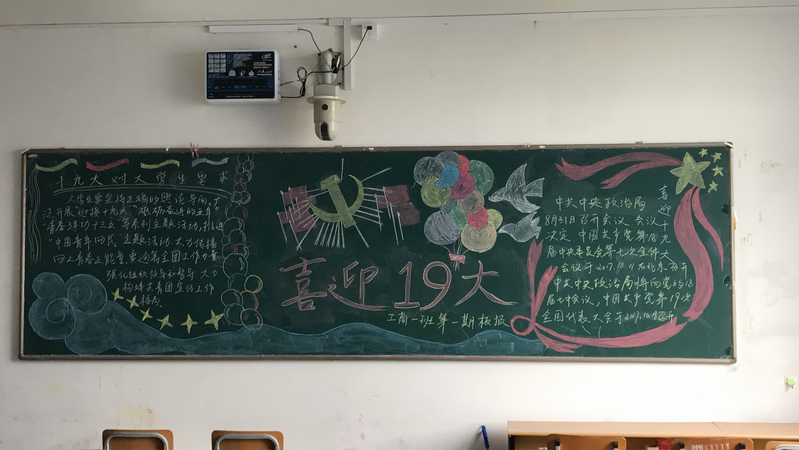 十九大对大学生要求
大学生要坚持正确的舆论导向,广
泛开展迎接十九大“砥砺奋进的五年”
青春建功十三五 等系列主题活动,推进
“中国青年网民 主题活动 大力传播
四上青春正能量 更迎为全国工作力量
强化组织领导和督导 大力
构建共青团宣传工作
格局
喜迎19大
工商一班第一期板报
喜迎十九大
中共中央政治局
8月31日召开会议 会议
决定 中国共产党第18
届中央委员会第七次全体
会议于2017.10.11在北京召开
中共中央政治局将向党的18
届七中会议,中国共产党第19次
全国代表大会于2017.10.18召开